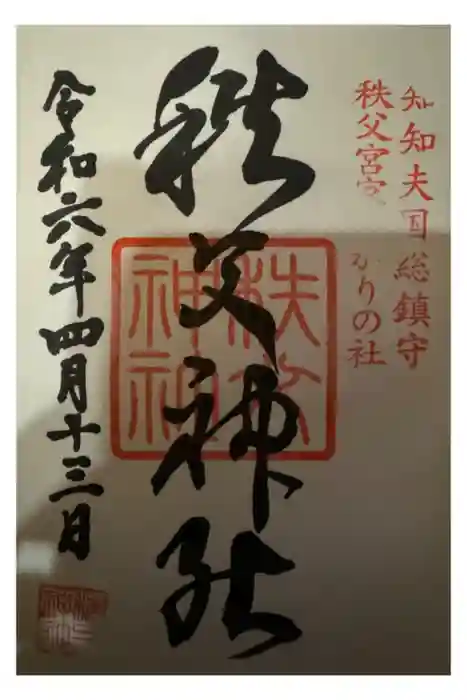 知知夫国総鎮守
秩父宮家
ゆかりの社
秩父神社
秩父神社
令和六年四月十三日